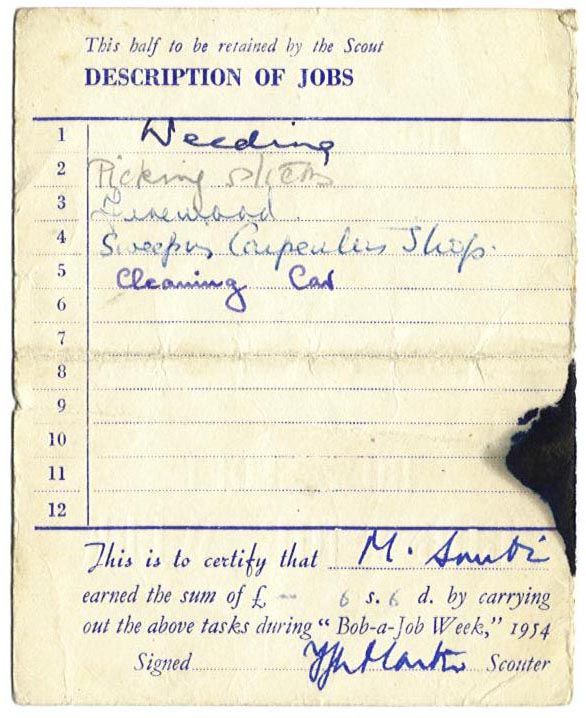 This half to be retained by the Scout
DESCRIPTION OF JOBS
1 Weeding
2 Picking
3 Firewood.
4 Sweeping Carpenters Shop.
5 Cleaning Car
6
7
8
9
10
11
12
This is to certify that M.
earned the sum of £ - 6 s. 6 d. by carrying
out the above tasks during "Bob-a-Job Week," 1954
Signed Scouter